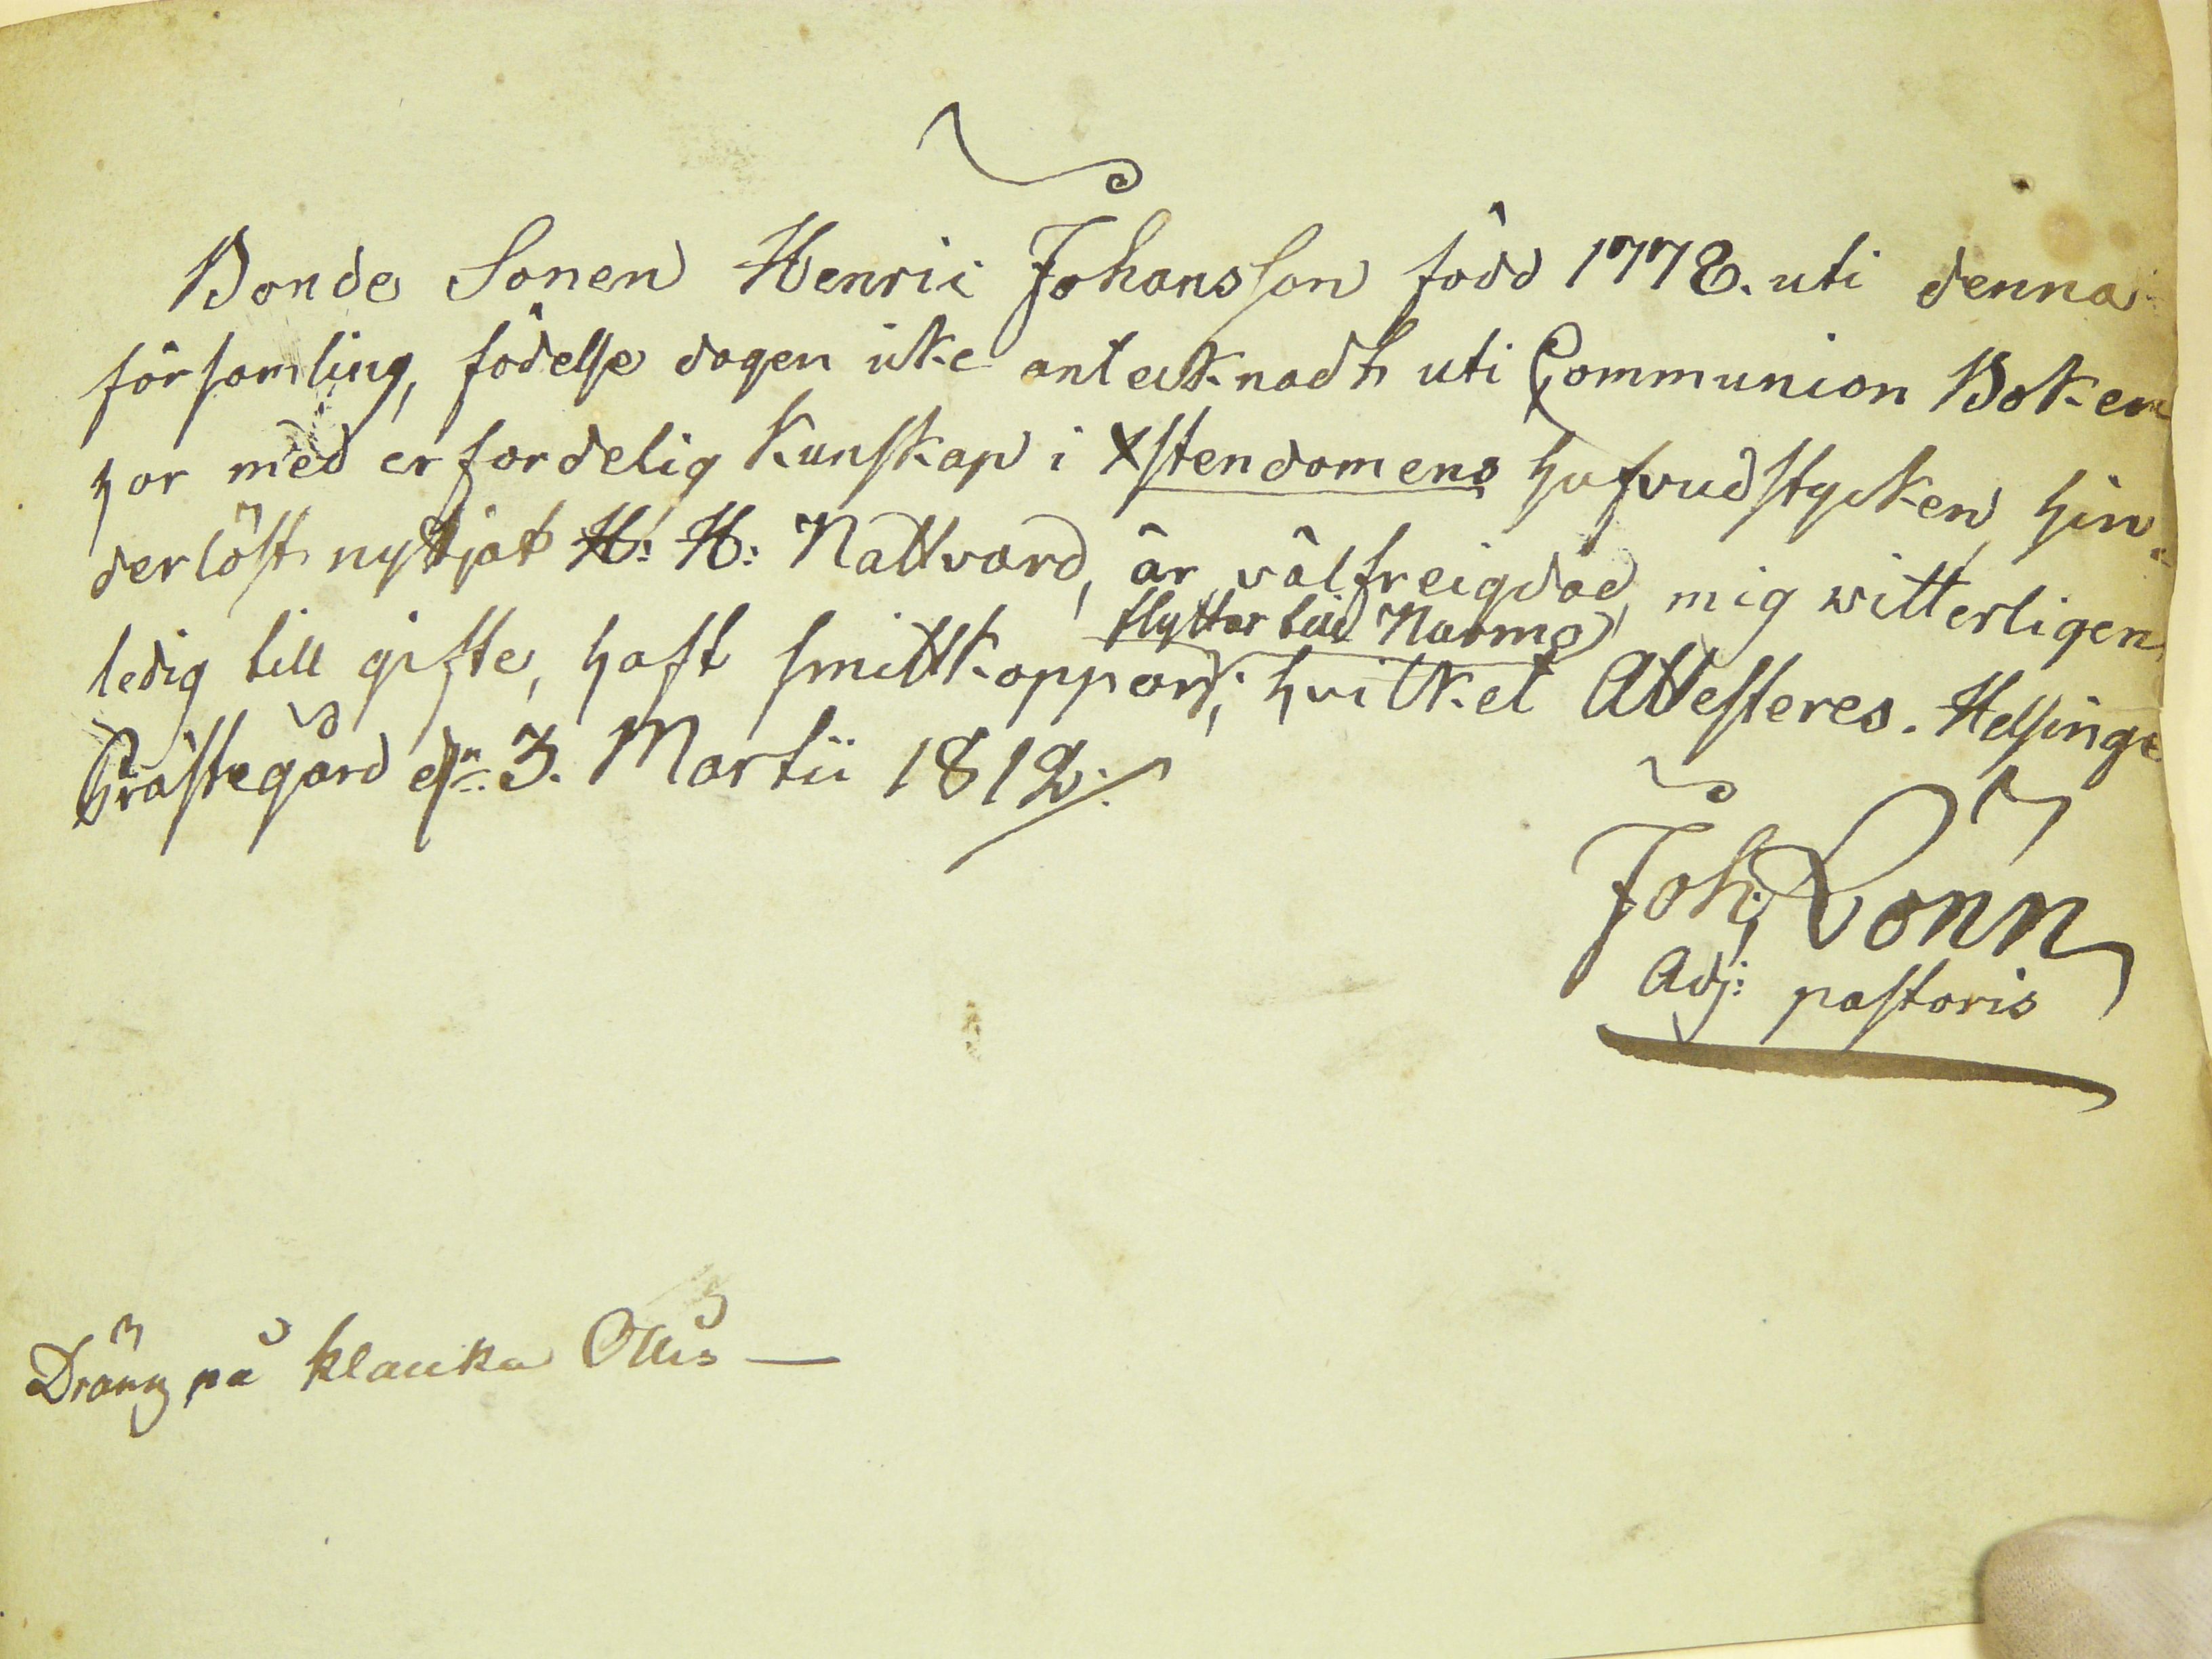 Bonde Sonen Henric Johansson född 1778. uti denna
församling, födelse dagen icke antecknadt uti Communion Boken
har med erforderlig kunskap i Xstendomens hufvudstycken, hin-
derlöst nyttjat H: H: Nattvard, är välfreigdad, mig witterligen
flyttar till Nurmo
ledig till gifte, haft smittkoppor; hvilket Attesteres. Helsinge
Prästegård d. 3. Martii 1812./.
Joh: Lönn
Adj: pastoris
Dräng på klauka Ollis —